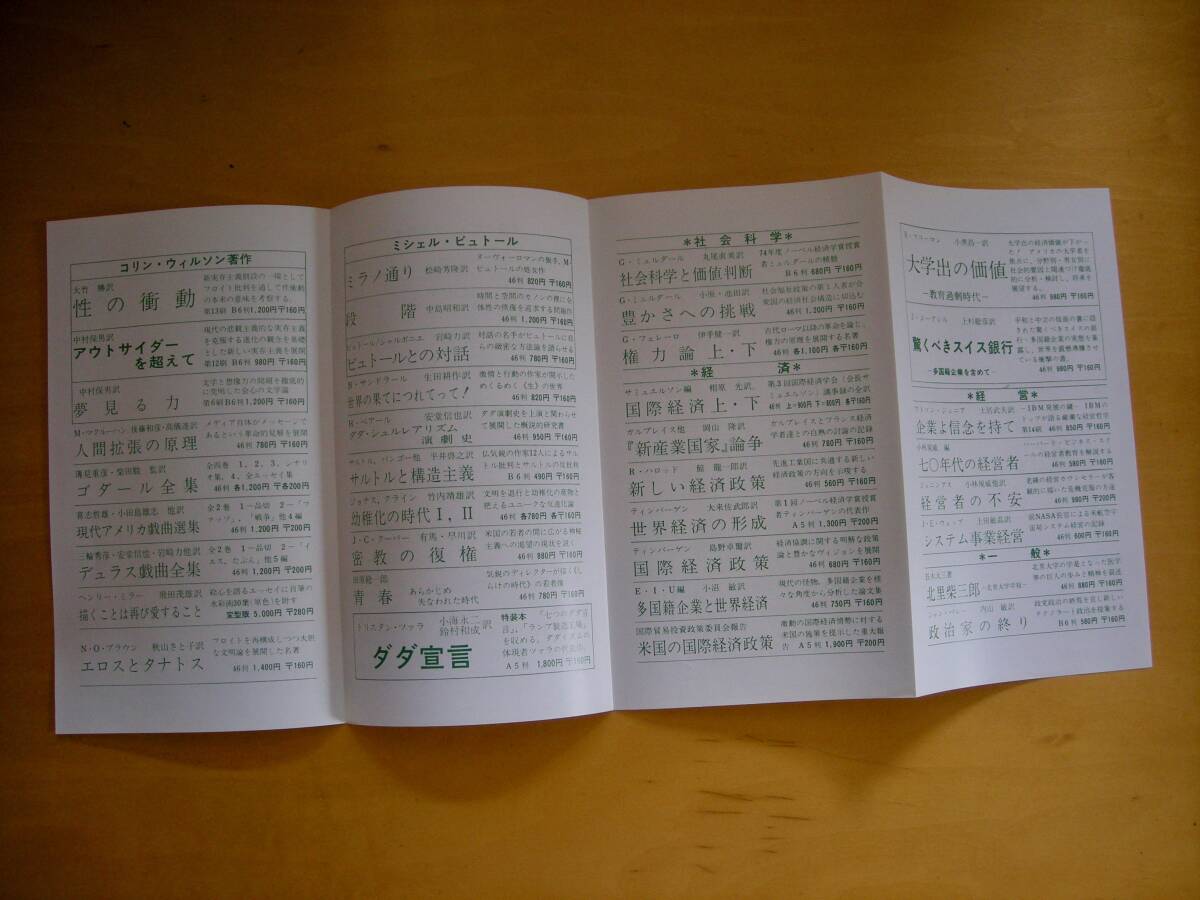 コリン・ウィルソン著作
大竹 勝訳
性の衝動
新実存主義創設の一環として
フロイト批判を通して性衝動
の本来の意味を考察する。
第13刷 B6判1,200円〒160円
中村保男訳
アウトサイダー
を超えて
現代の悲観主義的な実存主義
を克服する進化の観念を基礎
とした新しい実存主義を展開
第12刷 B6判980円〒160円
中村保男訳
夢見る力
文学と想像力の問題を徹底的
に究明した会心の文学論
第6刷B6判1,200円〒160円
M・マクルーハン 後藤和彦・高儀進訳
人間拡張の原理
メディア自体がメッセージで
あるという革命的見解を展開
46判 780円 〒160円
蓮見重彦・柴田駿 監訳
ゴダール全集
全四巻 1、2、3、シナリ
オ集、4、全エッセイ集
46判 各1,200円 〒各200円
喜志哲雄・小田島雄志 他訳
現代アメリカ戯曲選集
全2巻 1―品切 2―「マ
ッツ」、「戦争」他4編
46判 1,200円 〒200円
三輪秀彦・安堂信也・岩崎力他訳
デュラス戯曲全集
全2巻 1―品切 2―「イ
エス、たぶん」他5編
46判 1,200円 〒200円
ヘンリー・ミラー 飛田茂雄訳
描くことは再び愛すること
絵心を語るエッセイに自筆の
水彩画30葉(原色)を附す
変型版 5,000円 〒280円
N・O・ブラウン 秋山さと子訳
エロスとタナトス
フロイトを再構成しつつ大胆
な文明論を展開した名著
46判 1,400円 〒160円
ミシェル・ビュトール
ミラノ通り 松崎芳隆訳
ヌーヴォーロマンの旗手、M・
ビュトールの処女作
46判 820円 〒160円
段階 中島昭和訳
時間と空間のモノンの裡に全
体性の恢復を追求する問題作
46判 1,200円 〒160円
ビュトール/シャルボニエ 岩崎力訳
ビュトールとの対話
対話の名手がビュトールに自
らの緻密な方法論を語らせる
46判 780円 〒160円
B・サンドラール 生田耕作訳
世界の果てにつれてって!
激情と行動の作家が開示した
めくるめく《生》の世界
46判 820円 〒160円
H・ベアール 安堂信也訳
ダダ・シュルレアリズム
演劇史
ダダ演劇史を上演と関わらせ
て展開した概説的研究書
46判 950円 〒160円
サルトル、パンゴー他 平井啓之訳
サルトルと構造主義
仏気鋭の作家12人によるサル
トル批判とサルトルの反批判
B6判 490円 〒160円
ジョナス、クライン 竹内靖雄訳
幼稚化の時代Ⅰ,Ⅱ
文明を退行と幼稚化の産物と
把えるユニークな気違化論
46判 各780円 各〒160円
J・C・クーパー 有馬・早川訳
密教の復権
米国の若者の間に広がる神秘
主義への渇望の現状を説く
46判 880円 〒160円
田原総一郎
青春 あらかじめ
失なわれた時代
気鋭のディレクターが描く《し
らけの時代》の若者像
46判 780円 〒160円
トリスタン・ツァラ
小海永二
鈴村和成訳
ダダ宣言
特装本 「七つのダダ宣
言」、「ランプ製造工場」
を収める。ダダイズムの
体現者ツァラの代表作。
A5判 1,800円 〒160円
＊社会科学＊
G・ミュルダール 丸尾直美訳
社会科学と価値判断
74年度ノーベル経済学賞授賞
者ミュルダールの精髄
B6判 680円 〒160円
G・ミュルダール 小原・池田訳
豊かさへの挑戦
社会福祉政策の第1人者が合
衆国の経済社会構造に切込む
46判 1,200円 〒160円
G・フェレーロ 伊手健一訳
権力論 上・下
古代ローマ以降の革命を論じ、
権力の原理を展開する名著
46判 各1,100円 各〒160円
＊経済＊
サミュエルソン編 相原 光訳
国際経済上・下
第3回国際経済学会(会長サ
ミュエルソン) 議事録の全訳
46判 上=900円 下=800円 各〒160円
ガルブレイス他 岡山 隆訳
『新産業国家』論争
ガルブレイスとフランス経済
学者達との白熱の討論の記録
46判 780円 〒160円
R・ハロッド 館 龍一郎訳
新しい経済政策
先進工業国に共通する新しい
経済政策の方向を示唆する
46判 560円 〒160円
ティンバーゲン 大来佐武郎訳
世界経済の形成
第1回ノーベル経済学賞授賞
者ティンバーゲンの代表作
A5判 1,900円 〒200円
ティンバーゲン 島野卓爾訳
国際経済政策
経済協調に関する明解な政策
論と豊かなヴィジョンを展開
46判 660円 〒160円
E・I・U編 小沼 敏訳
多国籍企業と世界経済
現代の怪物、多国籍企業を様
々な角度から分析した論文集
46判 750円 〒160円
国際貿易投資政策委員会報告
米国の国際経済政策
激動の国際経済情勢に対する
米国の施策を提示した重大報
告 A5判 1,900円 〒200円
R・フリーマン 小黒昌一訳
大学出の価値
―教育過剰時代―
大学出の経済価値が下がっ
た! アメリカの大学卒を
焦点に、分野別・男女別に
社会的要因と関連づけ徹底
的に分析・検討し、将来を
展望する。
46判 980円 〒160円
上杉聡彦訳
驚くべきスイス銀行
―多国籍企業を含めて―
平和と中立の仮面の裏に隠
された驚くべきスイスの銀
行・多国籍企業の実態を暴
46判 980円 〒160円
＊経営＊
ワトソン・ジュニア 土居武夫訳
企業よ信念を持て
―IBM発展の鍵―IBMの
トップが語る厳粛な経営哲学
第14刷 46判 850円 〒160円
小林規威 編
七〇年代の経営者
ハーバード・ビジネス・スク
ールの経営者教育を解説する
46判 580円 〒160円
ジェニングス 小林規威他訳
経営者の不安
老練の経営カウンセラーが客
観的に描いた危機克服の方途
46判 980円 〒200円
J・E・ウェッブ 上田敏晶訳
システム事業経営
前NASA長官による米航空宇
宙局システム経営の記録
46判 600円 〒160円
＊一般＊
長木大三著
北里柴三郎
北里大学の学祖となった医学
界の巨人の歩みと精神を叙述
46判 880円 〒160円
ジャン・バレー 内山 敏訳
政治家の終り
政党政治の終焉を宣し新しい
テクノクラート政治を提案する
B6判 560円 〒160円